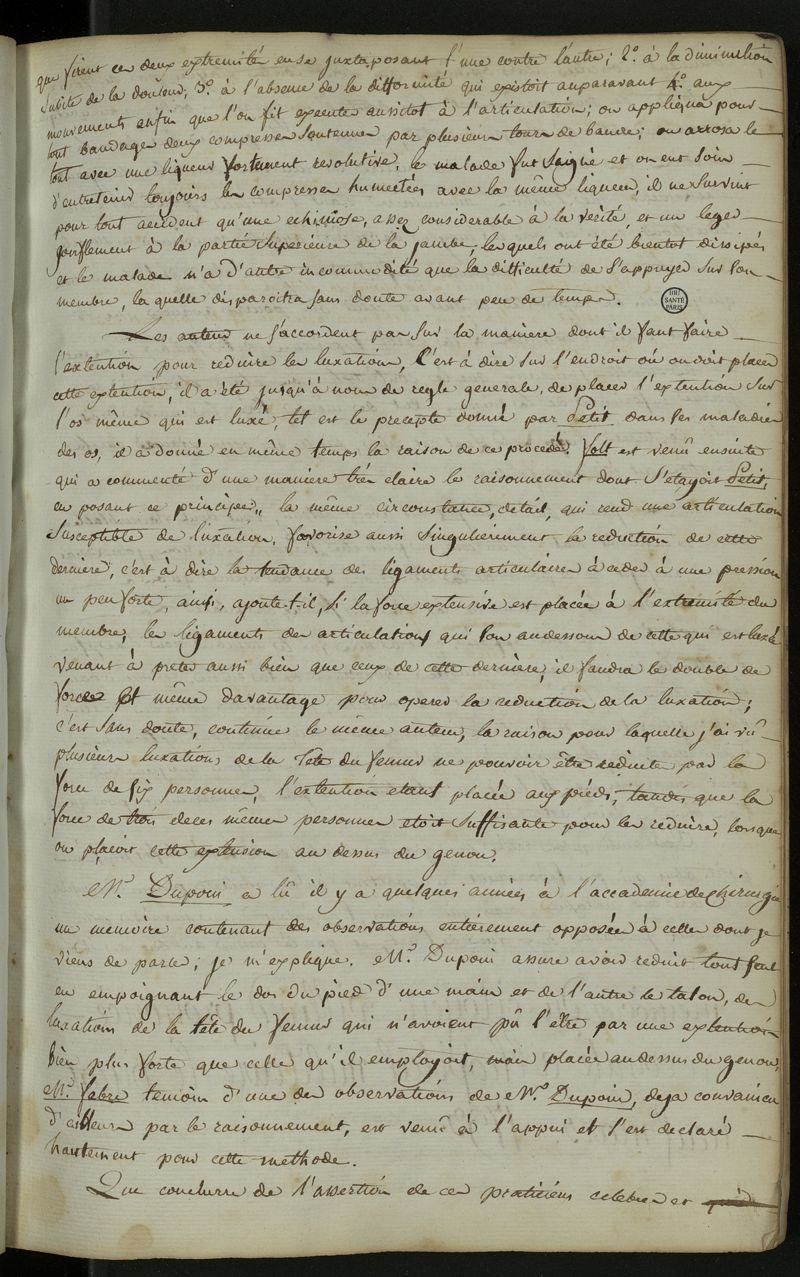 que firent ces deux extremités en se juxtaposant l'une contre l'autre; 2.º à la diminution
subite de la douleur; 3.º à l'absence de la difformité qui existoit auparavant 4.º aux
mouvements enfin que l'on fit executer aussitot à l'articulation; on appliqua pour
tout bandage deux compresses soutenues par plusieurs tours de bande; on arrosa le
tout avec une liqueur fortement resolutive, le malade fut saigné et on eut soin
d'entretenir toujours les compresses humectées avec la même liqueur, il ne survint
pour tout accident qu'une echimose, assez considerable à la verité, et un leger
gonflement à la partie superieure de la jambe, lesquels ont été bientot dissipés
et le malade n'a d'autre incommodité que la difficulté de s'appuyer sur son
membre, la quelle disparoitra sans doute avant peu de temps.
BIU SANTÉ PARIS
Les auteurs ne s'accordent pas sur la maniere dont il faut faire
l'extention pour reduire les luxations, C'est à dire sur l'endroit où on doit placer
cette extention, il a été jusqu'à nous de regle generale, de placer l'extention sur
l'os même qui est luxé, tel est le precepte donné par Petit dans ses maladies
des os, il a donné en même temps la raison de ce procedé. Pott est venû ensuite
qui a commenté d'une maniere très claire le raisonnement dont s'étayoit Petit,
en posant ce principe,, la même circonstance, dit-il, qui rend une articulation
susceptible de luxation, favorise aussi singulierement la reduction de cette
derniere, c'est à dire la tendance des ligaments articulaires à ceder à une pression
un peu forte, ainsi, ajoute t-il, si la force extensive est placée à l'extremité du
membre, les ligaments des articulations qui son audessous de cette qui est luxé
venant à preter aussi bien que ceux de cette derniere, il faudra le double de
force et même davantage pour operer la reduction de la luxation;
c'est sans doute, continue le même auteur, la raison pour laquelle j'ai vû
plusieurs luxations de la Tete du femur ne pouvoir être reduites par la
force de six personnes, l'extention etant placée aux pieds, tandis que la
force de trois de ces mêmes personnes etoit suffisante pour les reduire, lorsque
on plaçoit cette extension au dessus du genou.
M.r Dupoui a lû il y a quelques années à l'accademie de chirurgie
un memoire contenant des observations entièrement opposées à celles dont je
viens de parler; je m'explique. M.r Dupoui assure avoir reduit tout seul
en empoignant le dos du pied d'une main et de l'autre le talon, des
luxations de la tête du femur qui n'avoient pû l'être par une extention
bien plus forte que celle qu'il employoit, mais placée audessus du genou,
M.r fabre temoin d'une des observations de M.r Dupoui, deja convaincu
d'ailleurs par le raisonnement, est venû à l'appui et s'est declaré
hautement pour cette methode.
Que conclurre de l'assertion de ces praticiens celebres et